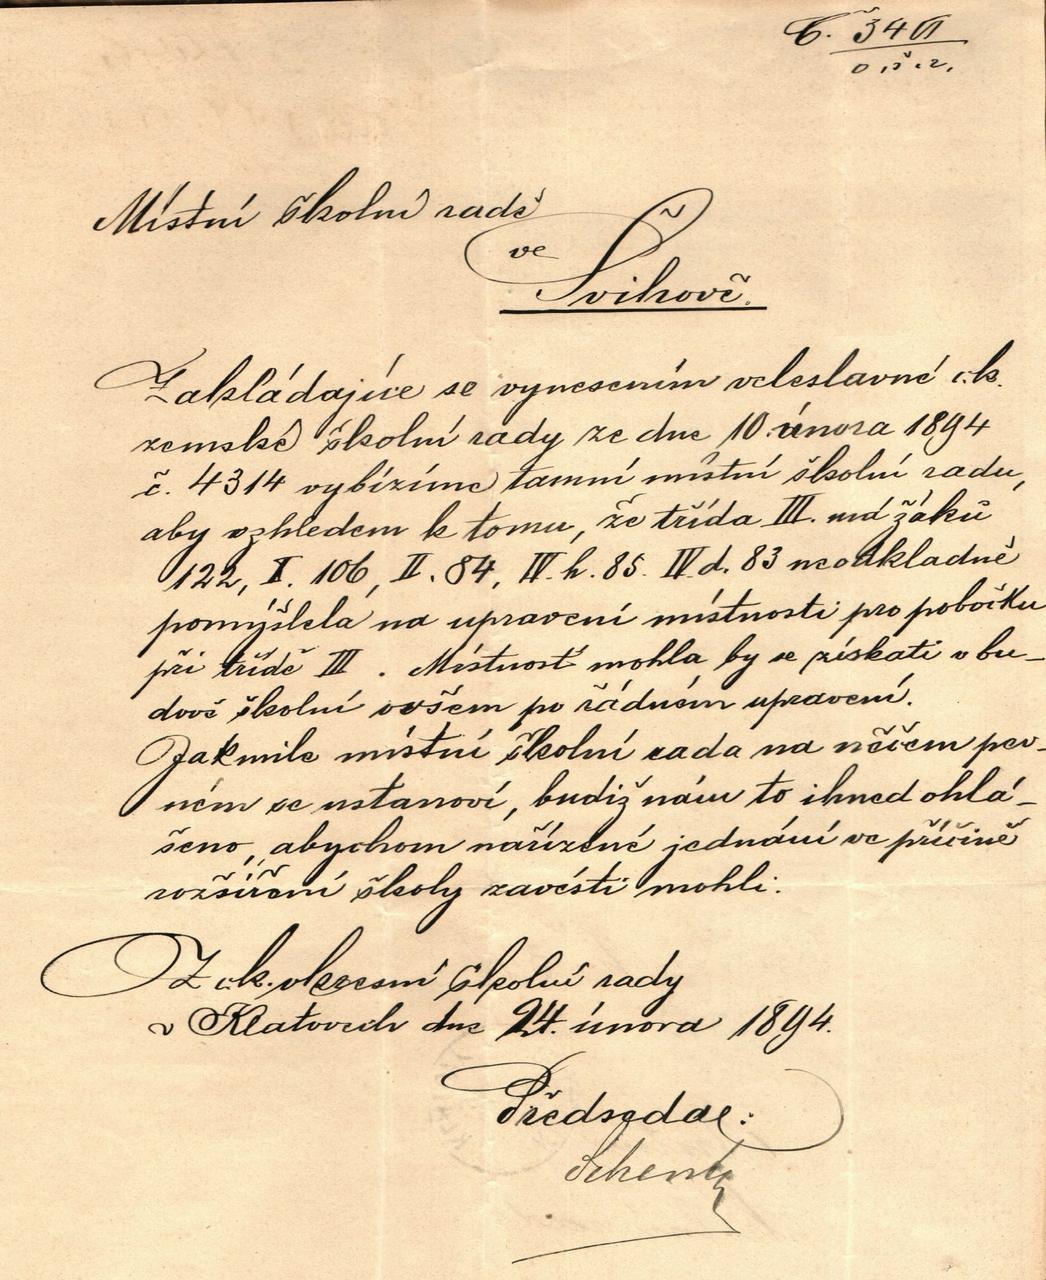 Č. 346
o.š.r.
Místní školní radě
ve
Švihově.
Zakládajíce se vynesením veleslavné c.k.
zemské školní rady ze dne 10. února 1894
č. 4314 vybízíme tamní místní školní radu,
aby vzhledem k tomu, že třída III. má žáků
122, I. 106, II. 84, IV. h. 85. IV. d. 83 neodkladně
pomýšlela na upravení místnosti pro pobočku
při třídě III. Místnosť mohla by se získati v bu-
dově školní ovšem po řádném upravení.
Jakmile místní školní rada na něčem pev-
ném se ustanoví, budiž nám to ihned ohlá-
šeno, abychom nařízené jednání ve příčině
rozšíření školy zavésti mohli.
Z c.k. okresní školní rady
v Klatovech dne 24. února 1894.
Předseda: